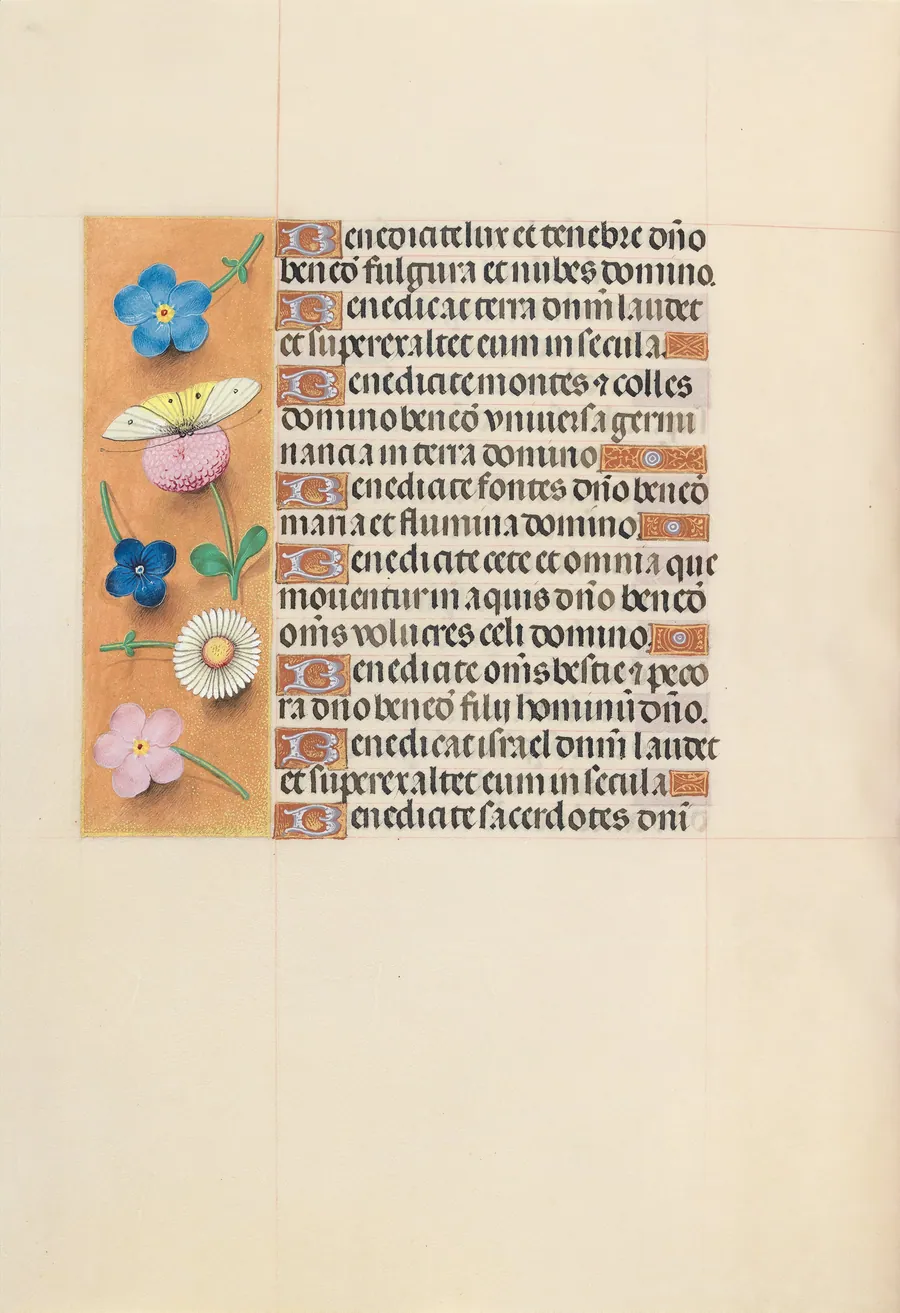 Benedicite lux et tenebre dño
beñcõ fulgura et nubes domino.
Benedicat terra dominũ laudet
et superexaltet eum in secula.
Benedicite montes ⁊ colles
domino beneõ vniuersa germi
nancia in terra domino
Benedicite fontes dño beneõ
maria et flumina domino
Benedicite cete et omnia que
mouentur in aquis dño beneõ
om̃s volucres celi domino
Benedicite om̃s bestie ⁊ peco
ra dño beneõ filij hominũ dño.
Benedicat israel dñm laudet
et superexaltet eum in secula
Benedicite sacerdotes dñi